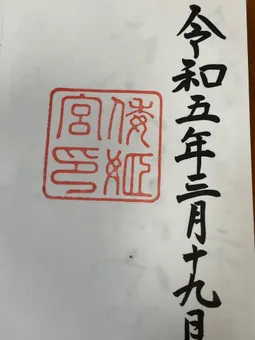 令和五年三月十九日
倭姫
宮印